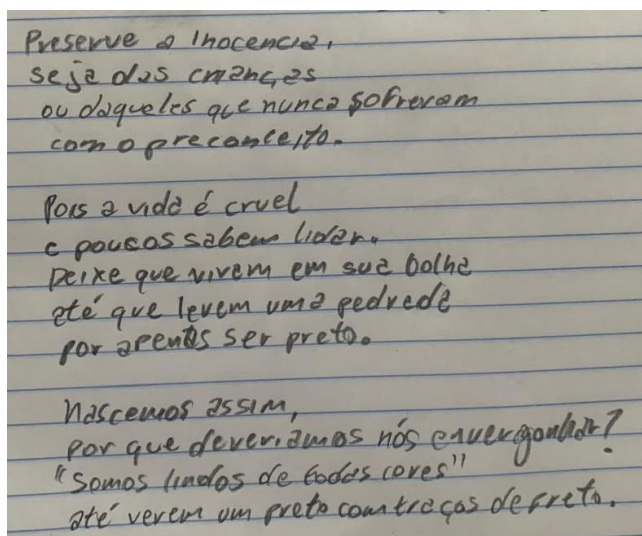 Preserve a inocencia,
seja das crianças
ou daqueles que nunca sofreram
com o preconceito.
Pois a vida é cruel
e poucos sabem lidar.
Deixe que vivam em sua bolha
até que levem uma pedrada
por apenas ser preto.
Nascemos assim,
por que deveriamos nós envergonhar?
"Somos lindos de todas cores"
até verem um preto com traços de preto.